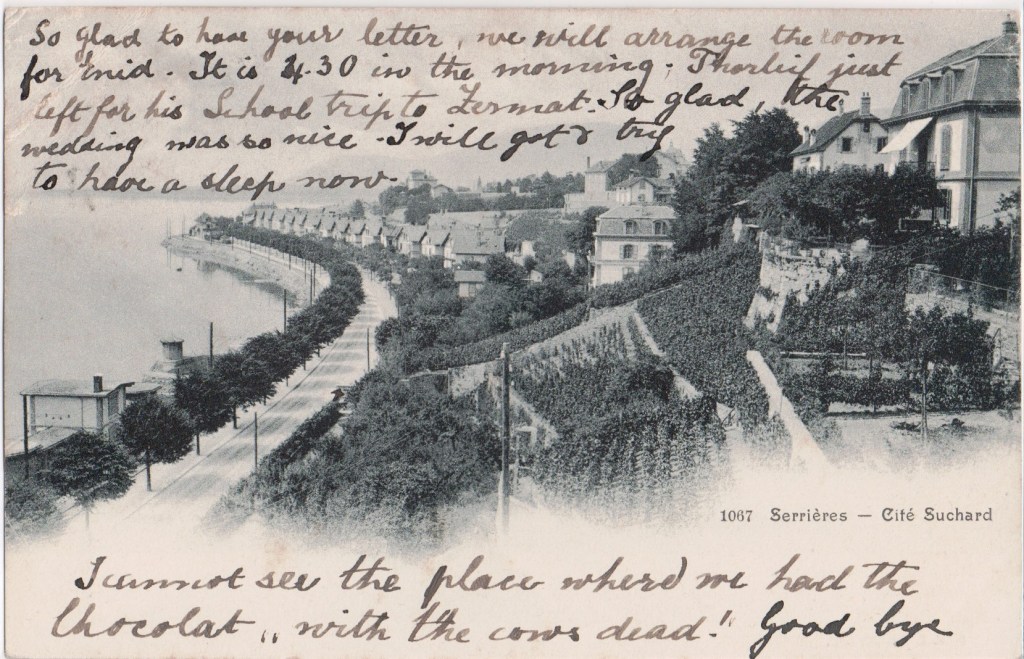 So glad to have your letter, we will arrange the room
for Enid. It is 4.30 in the morning. Thorleif just
left for his School trip to Zermat. So glad, the
wedding was so nice. I will got & try
to have a sleep now
1067 Serrières — Cité Suchard
I cannot see the place where we had the
Chocolat „ with the cows dead!" Good bye